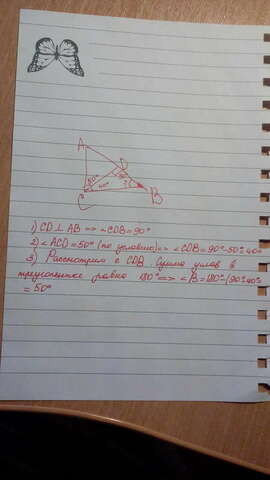 A
D
50°
90°
40°
?
C
B
1) CD ⊥ AB => ∠CDB = 90°
2) ∠ACD = 50° (по условию) => ∠CDB = 90°-50°=40°
3) Рассмотрим с CDB. Сумма углов в
треугольнике равна 180° => ∠B = 180°-(90°+40°
= 50°